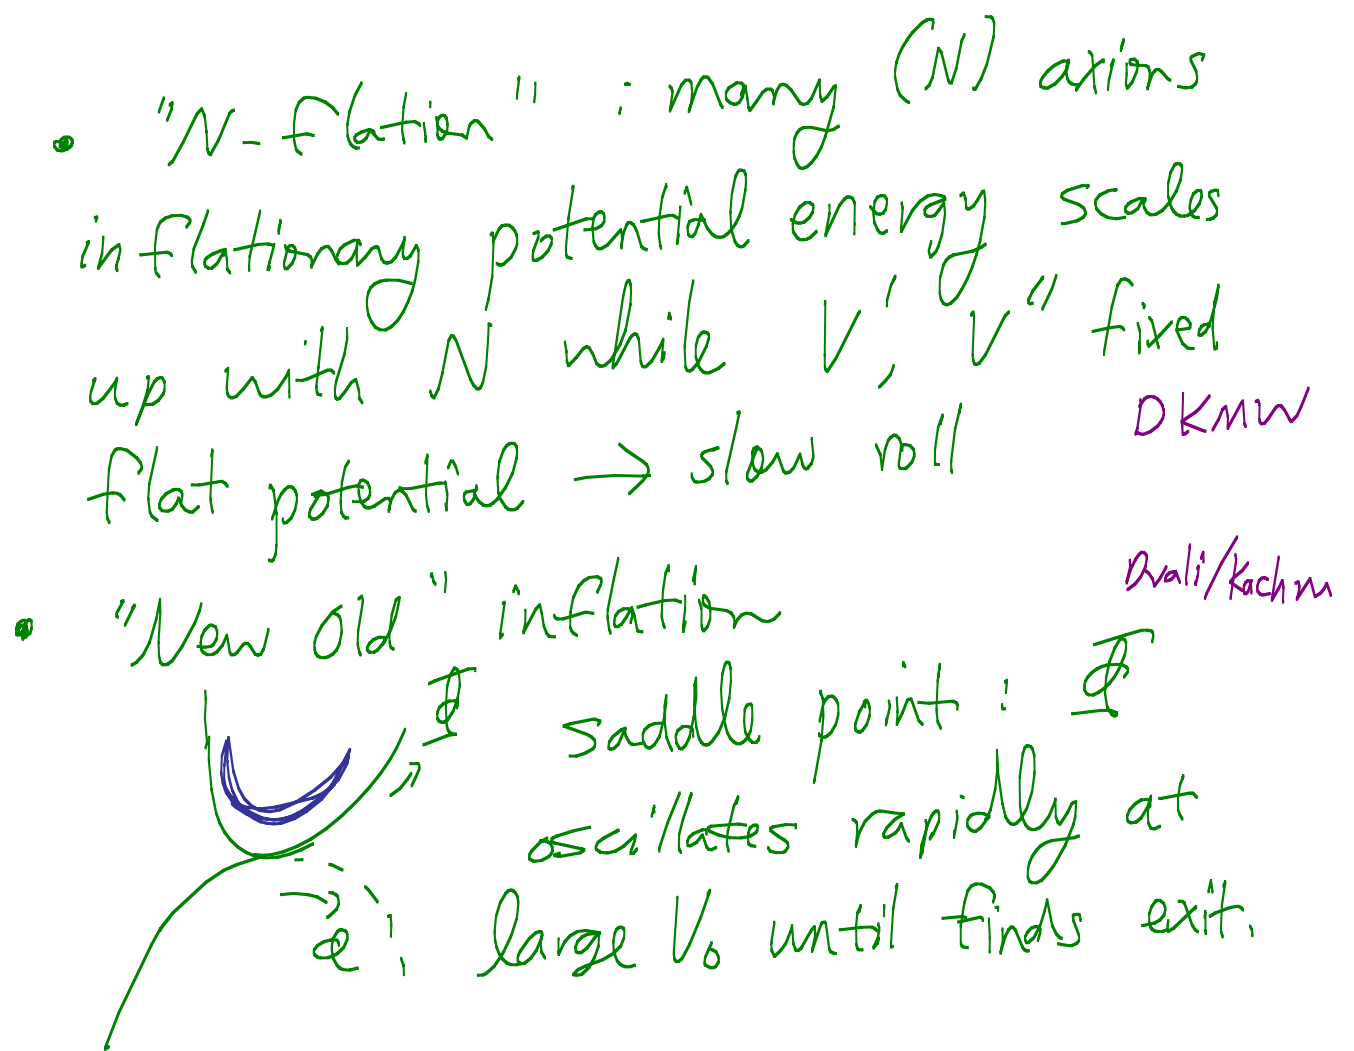 • "N-flation" : many (N) axions
inflationary potential energy scales
up with N while V', V" fixed
DKMW
flat potential → slow roll
Dvali/Kachru
• "New Old" inflation
Φ saddle point : Φ
oscillates rapidly at
large V₀ until finds exit.